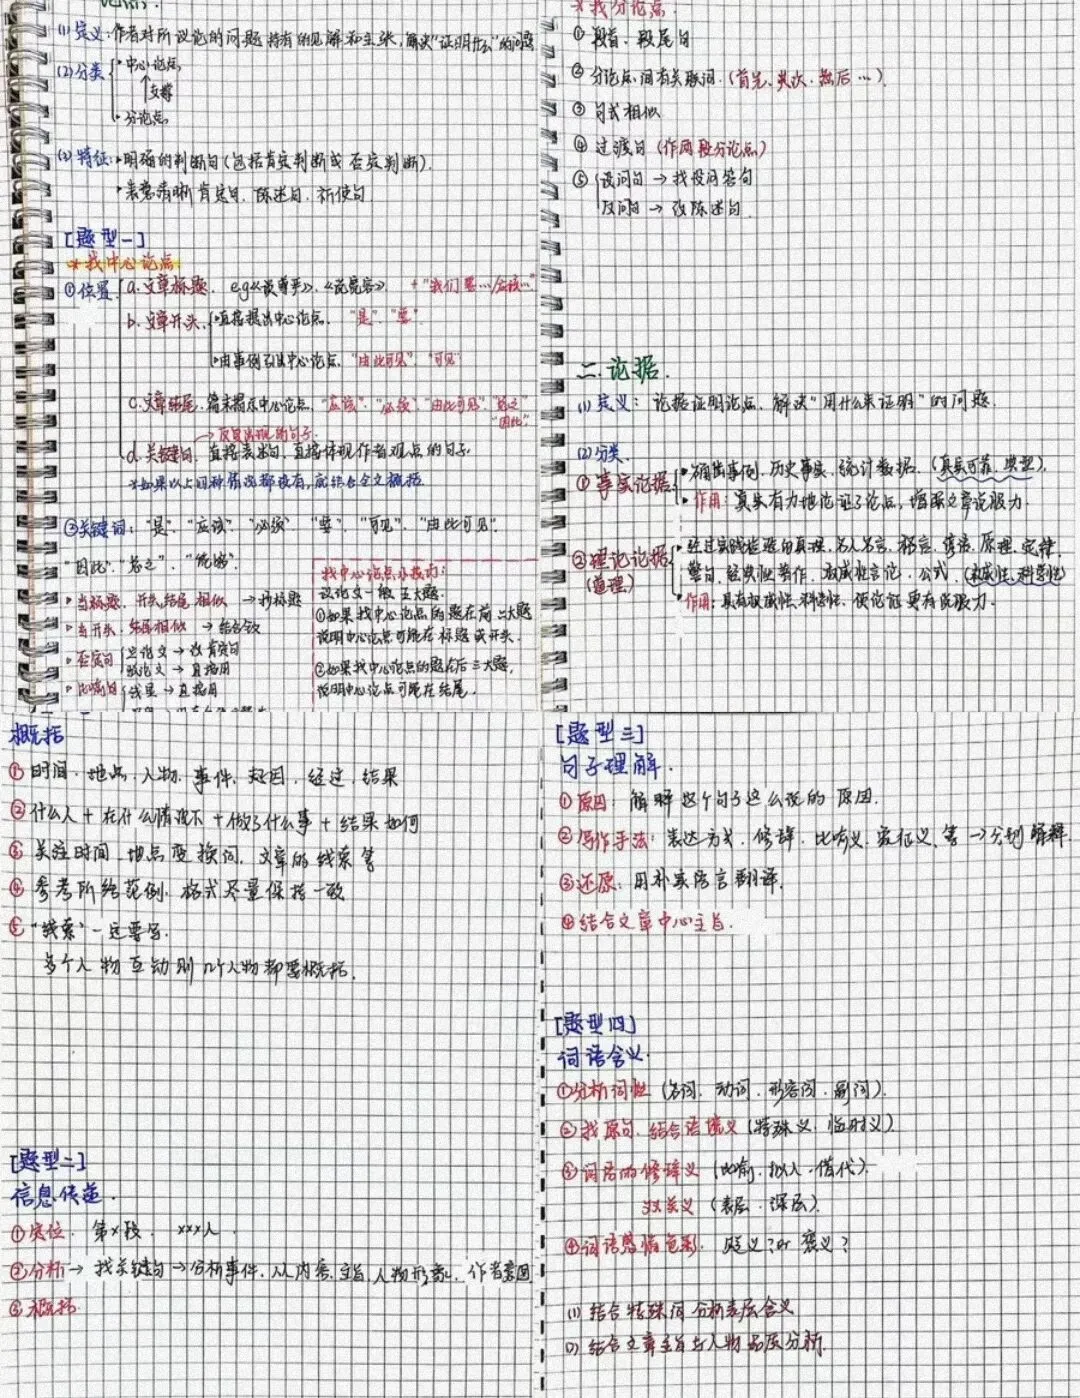 (1) 定义：作者对所议论的问题持有的见解和主张，解决"证明什么"的问题
(2) 分类
·中心论点
↑支撑
·分论点
(3) 特征：·明确的判断句(包括肯定判断或否定判断).
·表意清晰肯定句、陈述句、祈使句
[题型一]
*找中心论点
①位置
a.文章标题. eg《谈骨气》、《说宽容》 + "我们要…/应该…"
b.文章开头.
·直接提出中心论点. "是"."要".
·由事例引出中心论点. "由此可见"."可见"
c.文章结尾.篇末揭示中心论点."应该"."必须"."由此可见"."总之"
"因此".
→反复出现的句子.
d.关键句.直接表述句.直接体现作者观点的句子.
*如果以上四种情况都没有,就结合全文概括.
②关键词："是"."应该"."必须" "要"."可见"."由此可见".
"因此"."总之". "能够".
·当标题、开头结尾相似 → 抄标题
·当开头、结尾相似 → 结合
·否定句
立论文 → 改肯定句
驳论文 → 直接用
·比喻句
浅显 → 直接用
找中心论点小技巧:
议论文一般 主大题.
①如果找中心论点的题在前 大题
说明中心论点可能在标题或开头.
②如果找中心论点的题在后三大题,
说明中心论点可能在结尾.
*找分论点.
①段首、段尾句
②分论点间有关联词.(首先、其次、然后…)
③句式相似
④过渡句(作两段分论点)
⑤
设问句 → 找设问答句
反问句 → 改陈述句.
二.论据.
(1) 定义：论据证明论点、解决"用什么来证明"的问题.
(2)分类.
①事实论据
·确凿事例、历史事实、统计数据.(真实可靠、典型).
·作用：真实有力地论证了论点，增强文章说服力.
②理论论据
(道理)
·经过实践检验的真理、名人名言、格言、谚语、原理、定律、
警句、经典性著作、权威性言论、公式.(权威性、科学性)
·作用:具有权威性、科学性、使论证更有说服力.
概括
①时间、地点、人物、事件、起因、经过、结果
②什么人+在什么情况下+做了什么事+结果如何
③关注时间、地点变换词、文章的线索等
④参考所给范例、格式尽量保持一致
⑤"线索"一定要写.
多个人物互动则几个人物都要概括.
[题型二]
信息传递.
①定位. 第x段. xxx人.
②分析→ 找关键句→分析事件.从内容、主旨、人物形象、作者意图
③概括
[题型三]
句子理解.
①原因：解释这个句子这么说的原因.
②写作手法：表达方式、修辞、比喻义、象征义、等→分别解释.
③还原：用朴实语言翻译.
④结合文章中心主旨.
[题型四]
词语含义.
①分析词性(名词、动词、形容词、副词).
②找原句、结合语境义(特殊义、临时义)
③词语的修辞义(比喻、拟人、借代).
双关义(表层、深层).
④词语感情色彩. 贬义?or 褒义?
(1) 结合特殊词分析表层含义
(2) 结合文章主旨与人物品质分析.